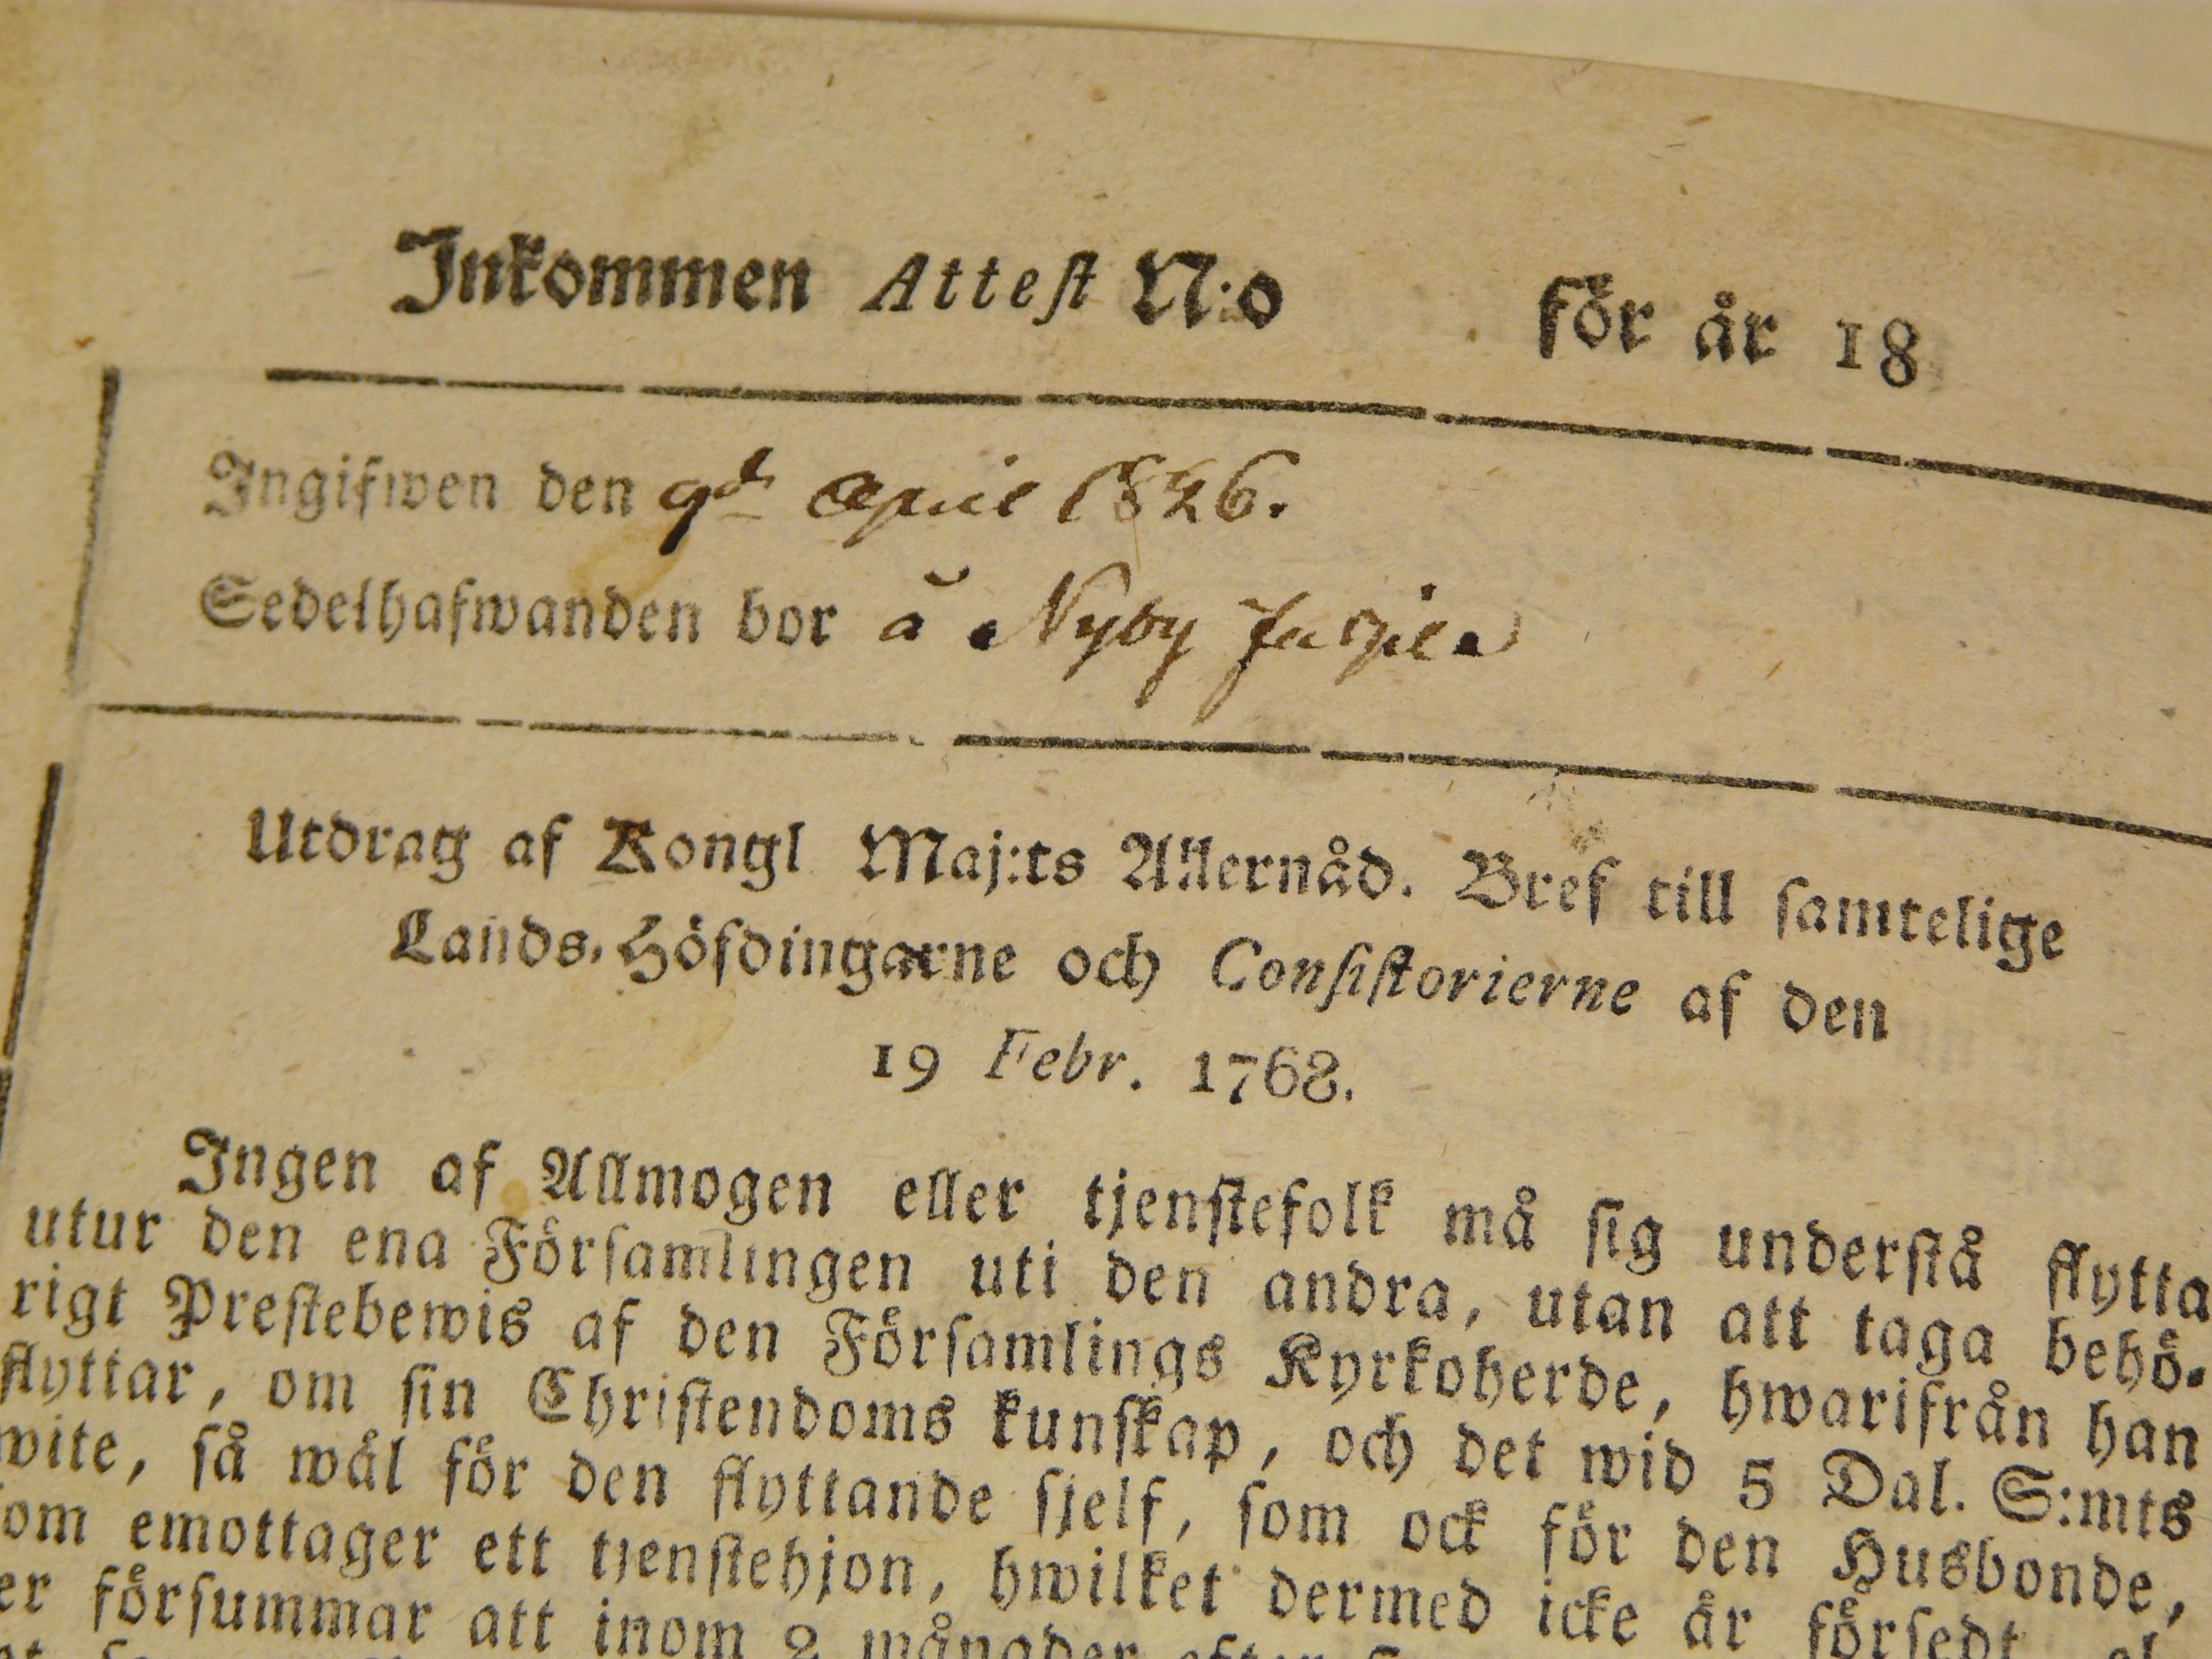 Inkommen Attest N:o för år 18
Ingifwen den 9d April 1826.
Sedelhafwanden bor å Nyby
Utdrag af Kongl Maj:ts Allernåd. Bref till samtelige
Lands-Höfdingarne och Consistorierne af den
19 Febr. 1768.
Ingen af Allmogen eller tjenstefolk må sig understå flytta
utur den ena Församlingen uti den andra, utan att taga behö-
rigt Prestebewis af den Församlings Kyrkoherde, hwarifrån han
flyttar, om sin Christendoms kunskap, och det wid 5 Dal. S:mts
wite, så wäl för den flyttande sjelf, som ock för den Husbonde,
som emottager ett tjenstehjon, hwilket dermed icke är försedt
er försummar att inom 2 månader efter